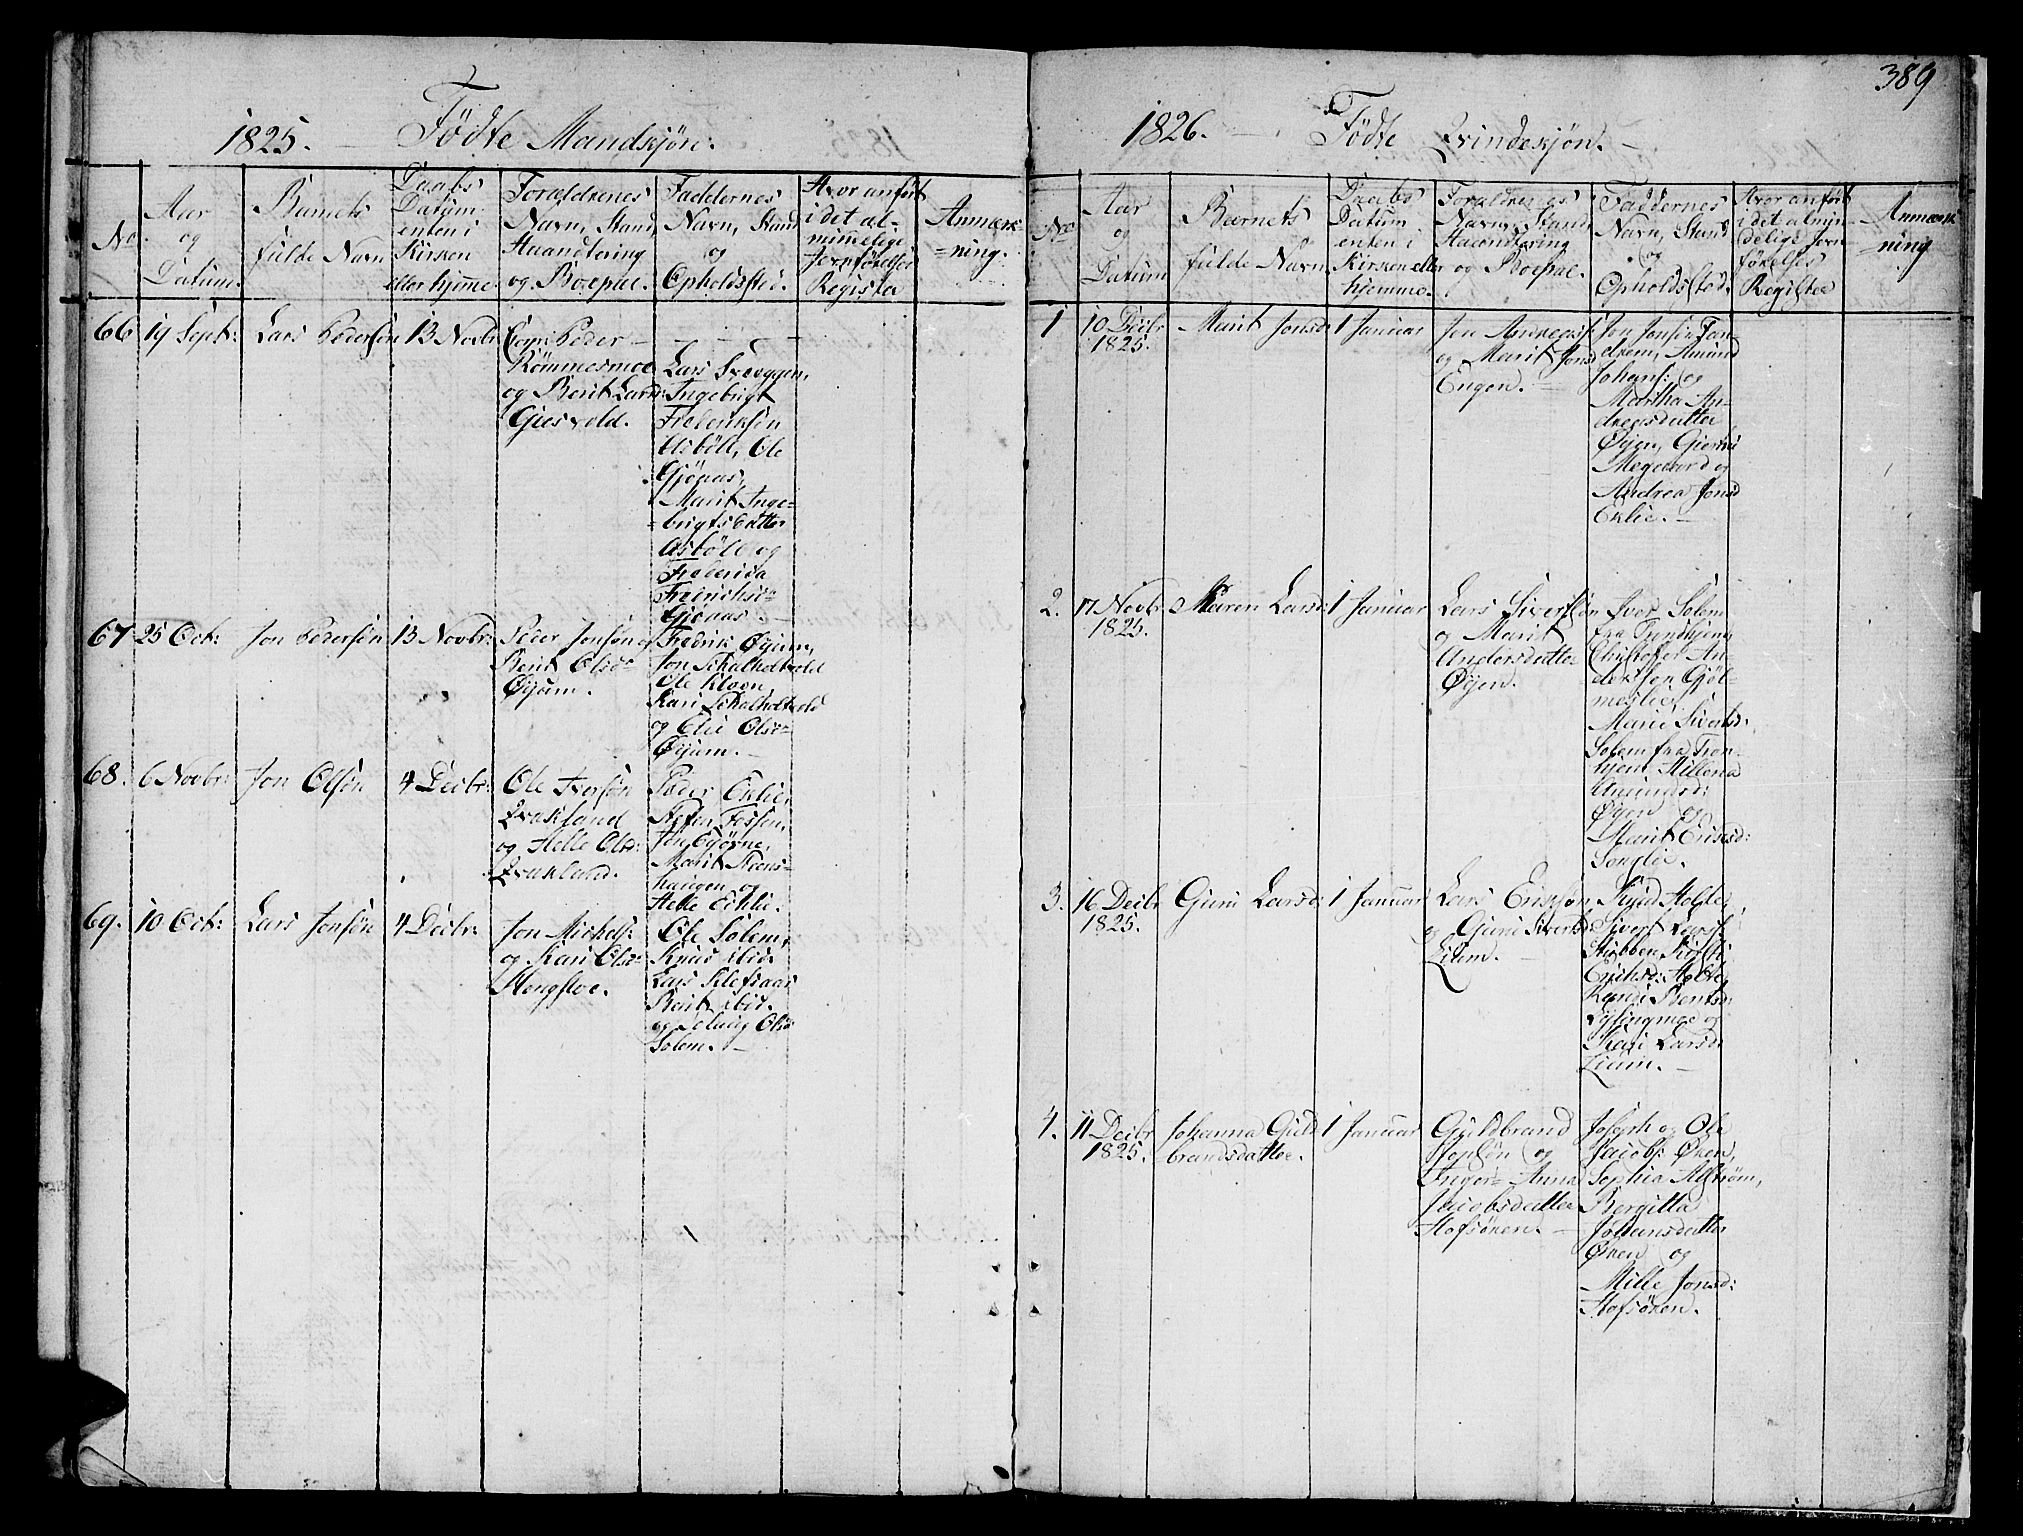 1825. — Fødte Mandkjøn:
No.
Aar
og
Datum.
Barnets
fulde Navn
Daabs
Datum
enten i
Kirken
eller hjemme
Forældrenes
Navn, Stand
Haandtering
og Boepæl.
Faddernes
Navn, Stand
og
Opholdsted.
Hvor anført
i det al-
mindelige
Jevnførelses
Register
Anmærk-
=ning.
66 19 Sept: Lars Pedersön 13 Novbr:
Peder
Römmesmoe
og Berit Larsd:
Gjesvold.
Lars Trevyggen,
Ingebrigt
Frederiksön
Asböll, Ole
Gjönas,
Marit Inge=
=brigtsdatter
Asböll og
Frederica
Gjönas
67 25 Oct: Jon Pedersön 13 Novbr:
Peder Jonsön og
Berit Olsd
Øyum.
Fredrik Øyum,
Jon Skalholtvold
Ole Kloen,
Kari Skalholtvold
og Elie Olsd
Øyum. —
68. 6 Novbr: Jon Olsön 4 Decbr:
Ole Iversön
Qvakland
og Helle Olsd:
Qvakland.
Peder Eklie,
Fossen,
Jon Gjörne,
Marit Steens-
haugen og
Helle Ecklie.
69. 10 Oct: Lars Jonsön 4 Decbr:
Jon Mickels:
og Kari Olsd
Hongsloe.
Ole Solem,
Knud ibid.
Lars Klefsaas
Berit ibid.
og Solvug Olsd
Solem. —
389
1826. — Fødte Qvindekjøn. —
No
Aar
og
Datum
Barnets
fulde Navn.
Daabs
Datum
enten i
Kirken eller
hjemme.
Forældrenes
Navn, Stand
Haandtering
og Boepæl.
Faddernes
Navn, Stand
og
Opholdssted.
Hvor anført
i det almin-
delige Jevn-
førelses
Register
Anmærk
=ning
1 10 Decbr
1825.
Marit Jonsd: 1 Januar
Jon Andreass:
og Marit Jonsd
Engen. —
Jon Jonsen
Amund
Johans: og
Martha An-
dreasdatter
Øyen,
Megaard og
Andrea Jonsd
Eklie. —
2. 17 Novbr
1825.
Maren Larsd: 1 Januar
Lars Sivertsön
og Marit
Andersdatter
Øyen.
Iver Solem
fra Trondhjem,
Christofer An-
dersen Gjöl-
meslie,
Marie Sivertsd:
Solem fra Tron-
hjem, Millena
Amundsd:
Øyen og
Marit Eriksd:
Songlie.
3. 16 Decbr
1825.
Guni Larsd: 1 Januar
Lars Ericsön
og Guni Sivertsd:
Lium. —
Sivert Lars:
Stubben,
Erichsd: Holte,
Randi Bentsd:
Lysingmoe og
Kari Larsd:
Lium. —
4. 11 Decbr
1825.
Johanna Guld
brandsdatter.
1 Januar
Guldbrand
og
Inger= Anna
Jacobsdatter
Hofsöken. —
Joseph og Ole
Jacobs: Øken,
Sophia Alström,
Bergitta
Johansdatter
Øken og
Mille Jonsd:
Hofsöken.